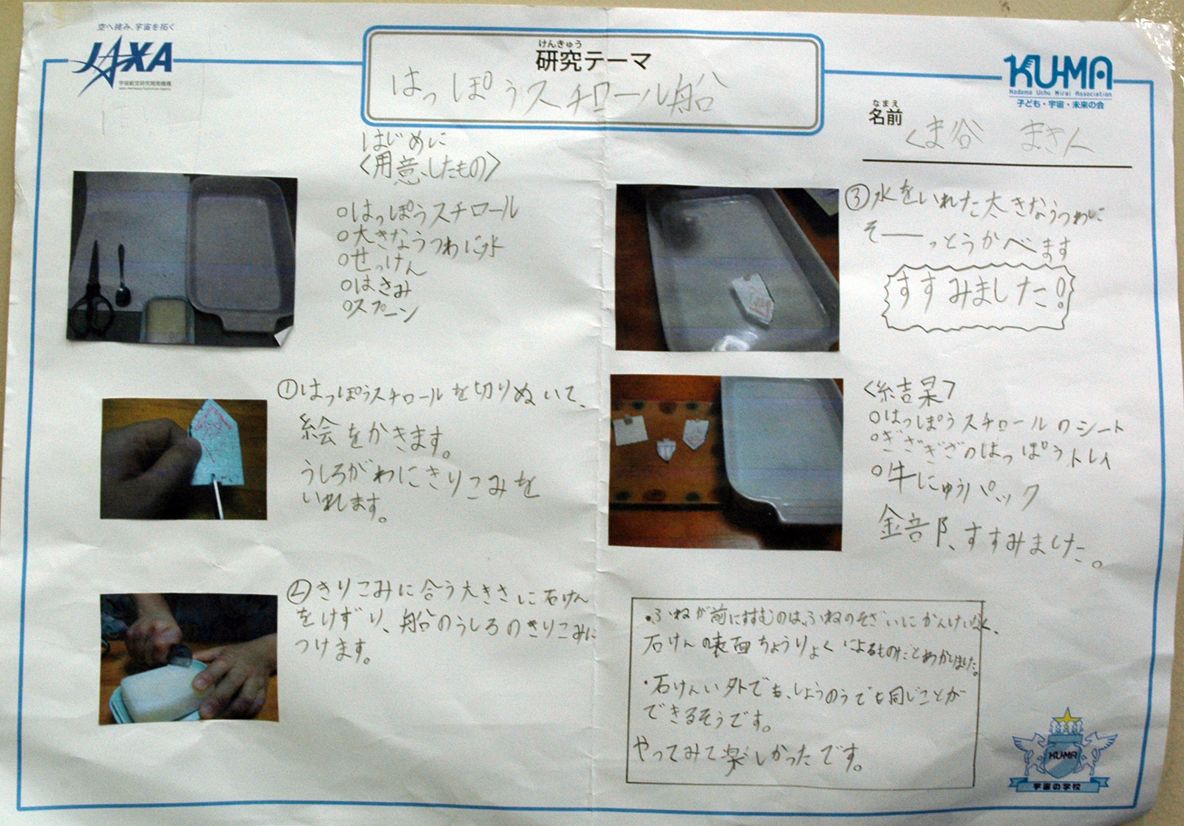 空へ挑み、宇宙を拓く
JAXA
宇宙航空研究開発機構
けんきゅう
研究テーマ
はっぽうスチロール船
KU-MA
Kodomo Uchu Mirai Association
子ども・宇宙・未来の会
なまえ
名前
くま谷
はじめに
〈用意したもの〉
○はっぽうスチロール
○大きなうつわに水
○せっけん
○はさみ
○スプーン
①はっぽうスチロールを切りぬいて、
絵をかきます。
うしろがわにきりこみを
いれます。
②きりこみに合う大きさに石けん
をけずり、船のうしろのきりこみに
つけます。
③水をいれた大きなうつわに
そーっとうかべます
すすみました!
〈結果〉
○はっぽうスチロールのシート
○ぎざぎざのはっぽうトレイ
○牛にゅうパック
全部、すすみました。
・ふねが前にすすむのは、ふねのそざいにかんけいなく、
石けんの表面ちょうりょくによるものだとわかりました。
・石けんい外でも、しょうのうでも同じことが
できるそうです。
やってみて楽しかったです。
KU-MA
宇宙の学校